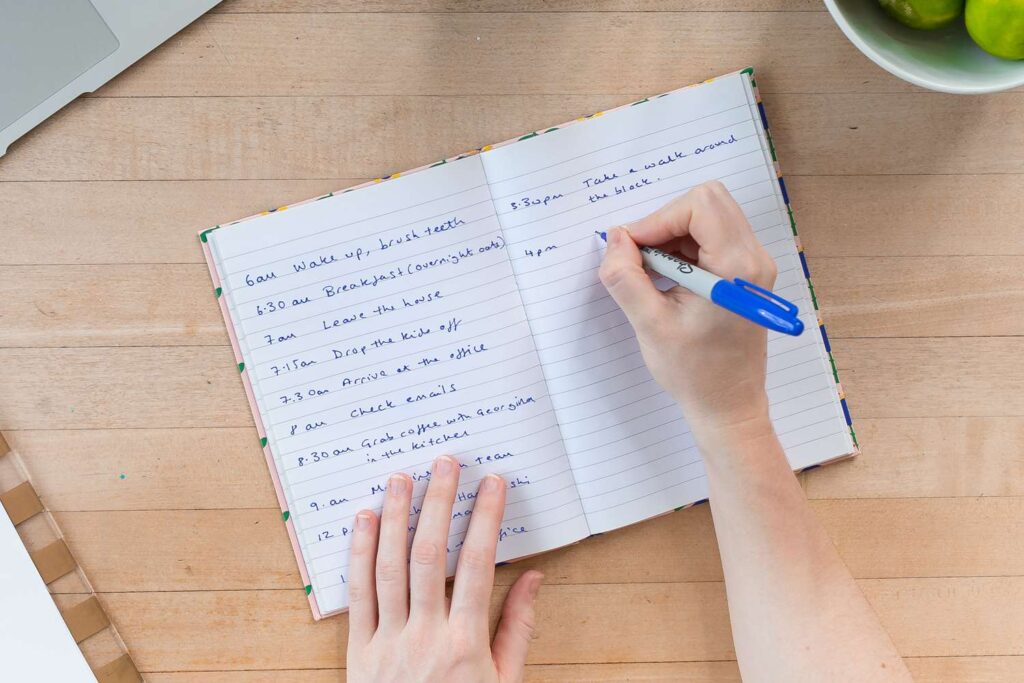 6am Wake up, brush teeth
6.30 am Breakfast (overnight oats)
7am Leave the house
7.15am Drop the kids off
7.30am Arrive at the office
8 am check emails
8.30am Grab coffee with Georgina
in the kitchen
9. am team
12
office
3.30pm Take a walk around
the block.
4pm
Sharpie